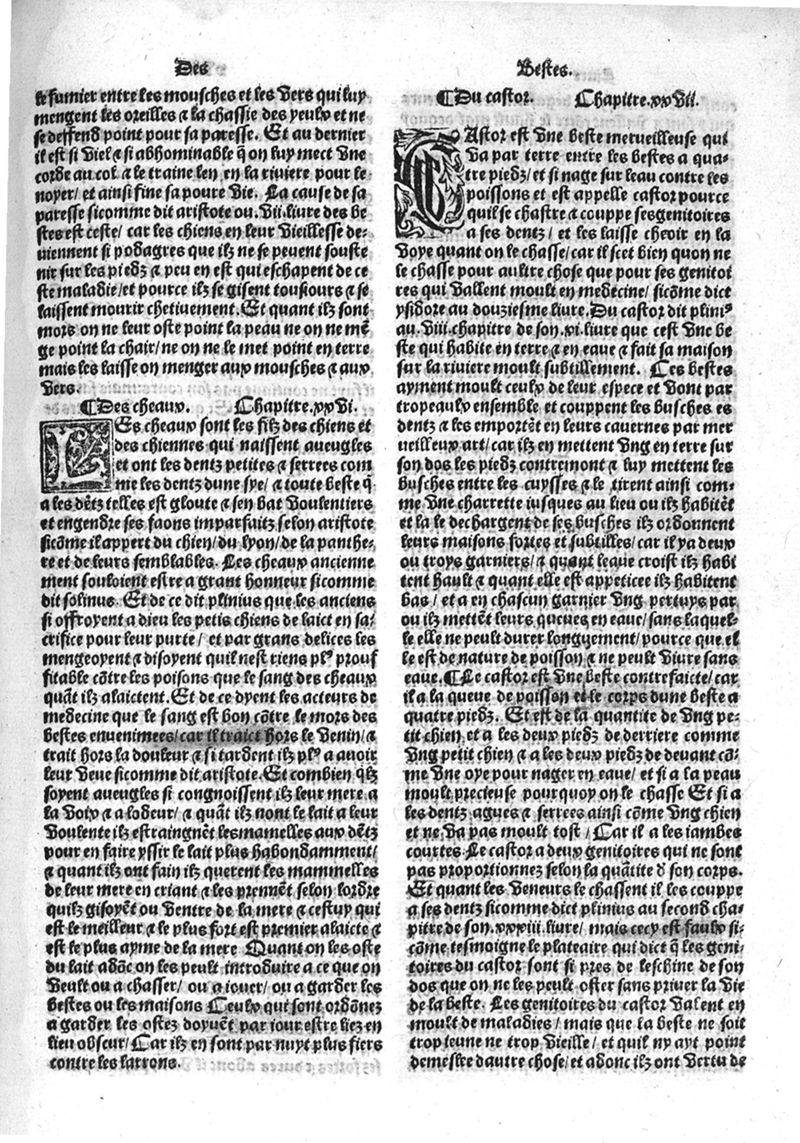 Des
le fumier entre les mousches et les vers qui luy
mengent les oreilles & la chassie des yeulx et ne
se deffend point pour sa paresse. Et au dernier
il est si viel & si abhominable q̄ on luy mect vne
corde au col & le traine len en la riviere pour le
noyer/ et ainsi fine sa poure vie. La cause de sa
paresse sicomme dit aristote ou. vii. livre des be
stes est ceste/ car les chiens en leur vieillesse de-
viennent si podagres que ilz ne se peuent souste
nir sur les piedz & peu en est qui eschapent de ce
ste maladie/ et pource ilz se gisent tousiours & se
laissent mourir chetiuement. Et quant ilz sont
mors on ne leur oste point la peau ne on ne mē
ge point la chair/ ne on ne le met point en terre
mais les laisse on menger aux mousches & aux
vers.
¶Des cheaux. Chapitre.xxvi.
LEs cheaux sont les filz des chiens et
des chiennes qui naissent aueugles
et ont les dentz petites & serrees com
me les dentz dune sye/ & toute beste q̄
a les dētz telles est gloute & sen bat voulentiers
et engendre ses faons imparfaitz selon aristote
sicōme il appert du chien/ du lyon/ de la panthe-
re et de leurs semblables. Les cheaux ancienne
ment souloient estre a grant honneur sicomme
dit solinus. Et de ce dit plinius que les anciens
si offroyent a dieu les petis chiens de laict en sa-
crifice pour leur purte/ et par grans delices les
mengeoyent & disoyent quil nest riens plꝰ prouf
fitable cōtre les poisons que le sang des cheaux
quāt ilz alaictent. Et de ce dyent les acteurs de
medecine que le sang est bon cōtre le mors des
bestes enuenimees/ car il traict hors le venin/ &
trait hors la douleur & si tardent ilz plꝰ a avoir
leur veue sicomme dit aristote. Et combien q̄lz
soyent aueugles si congnoissent ilz leur mere a
la voix & a lodeur/ & quāt ilz nont le lait a leur
voulente ilz estraingnēt les mamelles aux dētz
pour en faire yssir le lait plus habondamment/
& quant ilz ont fain ilz querent les mammelles
de leur mere en criant & les prennēt selon lordre
quilz gisoyēt ou ventre de la mere & cestuy qui
est le meilleur & le plus fort est premier alaicte &
est le plus ayme de la mere Quant on les oste
du lait adōc on les peult introduire a ce que on
veult ou a chasser/ ou a iouer/ ou a garder les
bestes ou les maisons Ceulx qui sont ordōnez
a garder les ostez doyuēt par iour estre liez en
lieu obscur/ Car ilz en sont par nuyt plus fiers
contre les larrons.
Bestes.
¶Du castor. Chapitre.xxvii.
CAstor est vne beste merueilleuse qui
va par terre entre les bestes a qua-
tre piedz/ et si nage sur leau contre les
poissons et est appelle castor pource
quil se chastre & couppe ses genitoires
a ses dentz/ et les laisse cheoir en la
voye quant on le chasse/ car il scet bien quon ne
le chasse pour aultre chose que pour ses genitoi
res qui vallent moult en medecine/ sicōme dict
ysidore au douziesme livre. Du castor dit pliniꝰ
au. viii. chapitre de son. xi. livre que cest vne be
ste qui habite en terre & en eaue & fait sa maison
sur la riviere moult subtillement. Ces bestes
ayment moult ceulx de leur espece et vont par
tropeaulx ensemble et couppent les busches es
dentz & les emportēt en leurs cavernes par mer
ueilleux art/ car ilz en mettent vng en terre sur
son dos les piedz contremont & luy mettent les
busches entre les cuysses & le tirent ainsi com-
me vne charrette iusques au lieu ou ilz habitēt
et la le dechargent de ses busches ilz ordonnent
leurs maisons fortes et subtilles/ car il ya deux
ou troys garniers/ & quant leaue croist ilz habi
tent hault & quant elle est appeticee ilz habitent
bas/ et a en chascun garnier vng pertuys par
ou ilz mettēt leurs queues en eaue/ sans laquel-
le elle ne peult durer longuement/ pource que el
le est de nature de poisson & ne peult vivre sans
eaue. ¶Le castor est vne beste contrefaicte/ car
il a la queue de poisson et le corps dune beste a
quatre piedz. Et est de la quantite de vng pe-
tit chien/ et a les deux piedz de derriere comme
vng petit chien & a les deux piedz de devant cō-
me vne oye pour nager en eaue/ et si a la peau
moult precieuse pourquoy on le chasse Et si a
les dentz agues & serrees ainsi cōme vng chien
et ne va pas moult tost/ Car il a les iambes
courtes. Le castor a deux genitoires qui ne sont
pas proportionnez selon la quātite d̄ son corps.
Et quant les veneurs le chassent il les couppe
a ses dentz sicomme dict plinius au second cha-
pitre de son. xxxiii. livre/ mais cecy est faulx si-
cōme tesmoigne le plateaire qui dict q̄ les geni-
toires du castor sont si pres de leschine de son
dos que on ne les peult oster sans priver la vie
de la beste. Les genitoires du castor valent en
moult de maladies/ mais que la beste ne soit
trop ieune ne trop vieille/ et quil ny ayt point
demestre dautre chose/ et adonc ilz ont vertu de